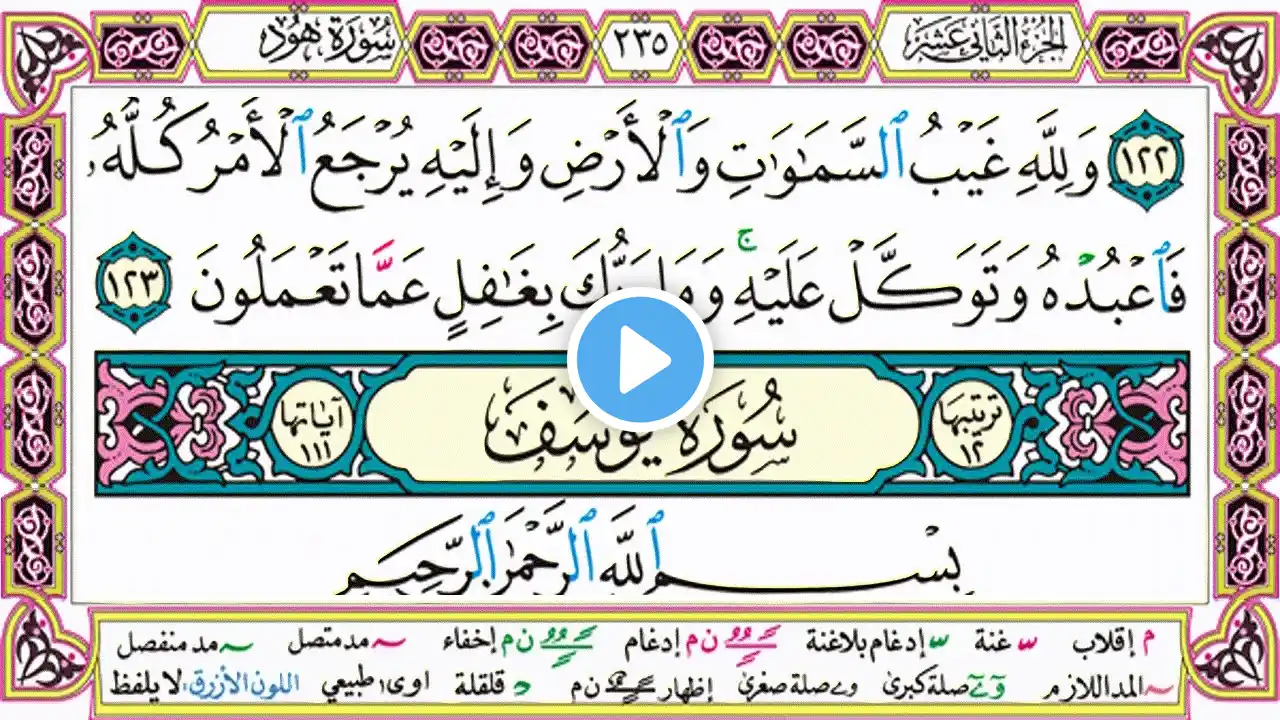 سُورَةُ هُود
٢٣٥
الجزء الثاني عشر
١٢٢ وَلِلَّهِ غَيْبُ ٱلسَّمَـٰوَٰتِ وَٱلْأَرْضِ وَإِلَيْهِ يُرْجَعُ ٱلْأَمْرُ كُلُّهُۥ
فَٱعْبُدْهُ وَتَوَكَّلْ عَلَيْهِۚ وَمَا رَبُّكَ بِغَـٰفِلٍ عَمَّا تَعْمَلُونَ ١٢٣
ترتيبها ١٢ سُورَةُ يُوسُف آياتها ١١١
بِسْمِ ٱللَّهِ ٱلرَّحْمَـٰنِ ٱلرَّحِيمِ
م إقلاب غنة إدغام بلاغنة ن م إدغام ن م إخفاء مد متصل مد منفصل
المد اللازم صلة كبرى و ے صلة صغرى إظهار ن م د قلقلة اوى طبيعي اللون الأزرق: لا يلفظ